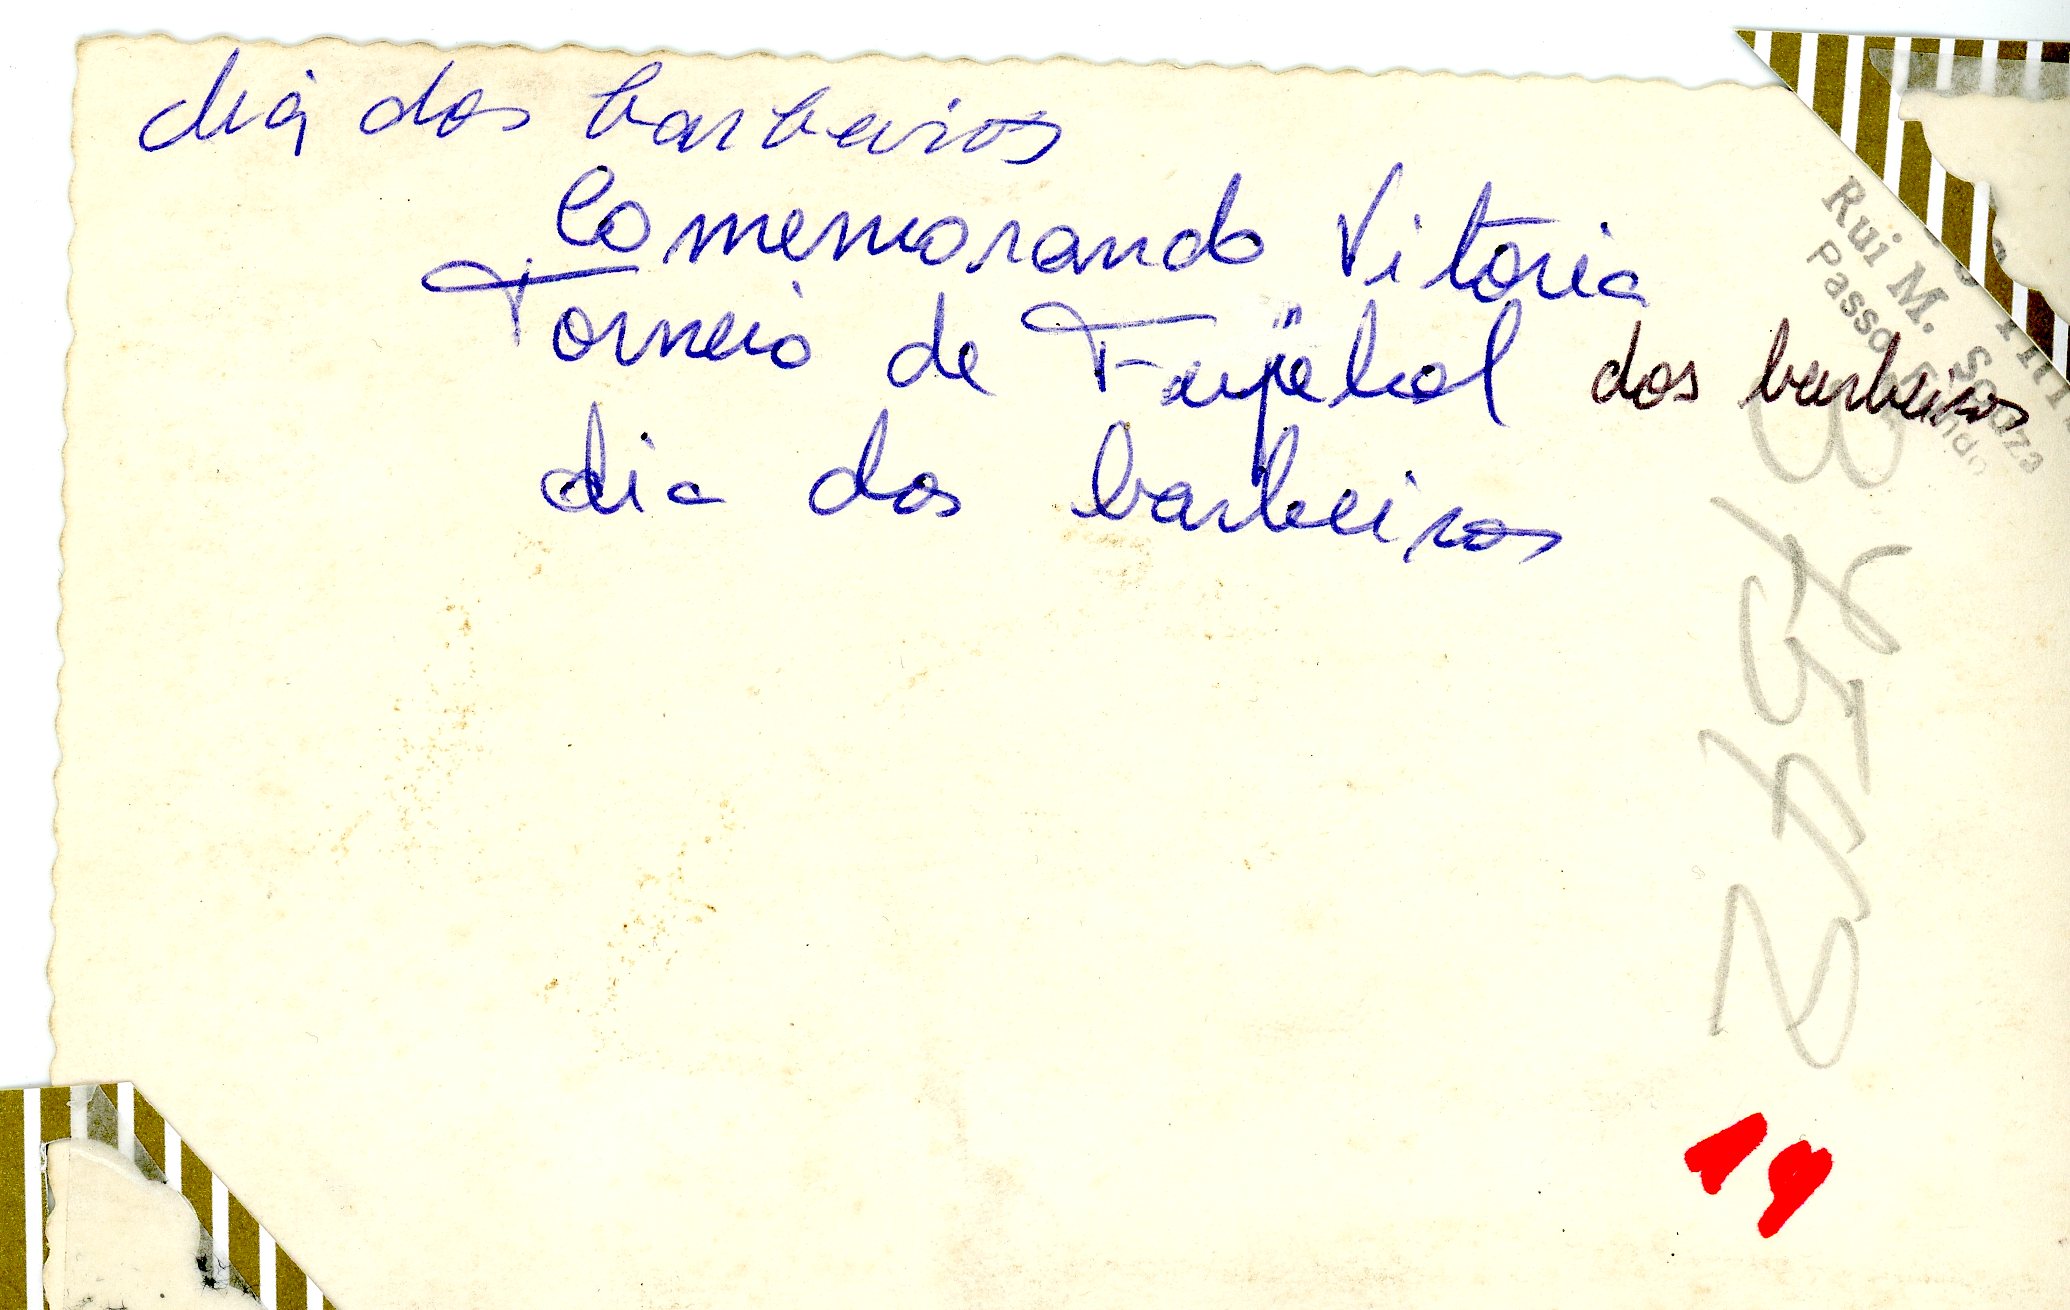 dia dos barbeiros
Comemorando Vitória
Torneio de Futebol dos barbeiros
dia dos barbeiros
Rui M. Souza
Passo Fundo
19